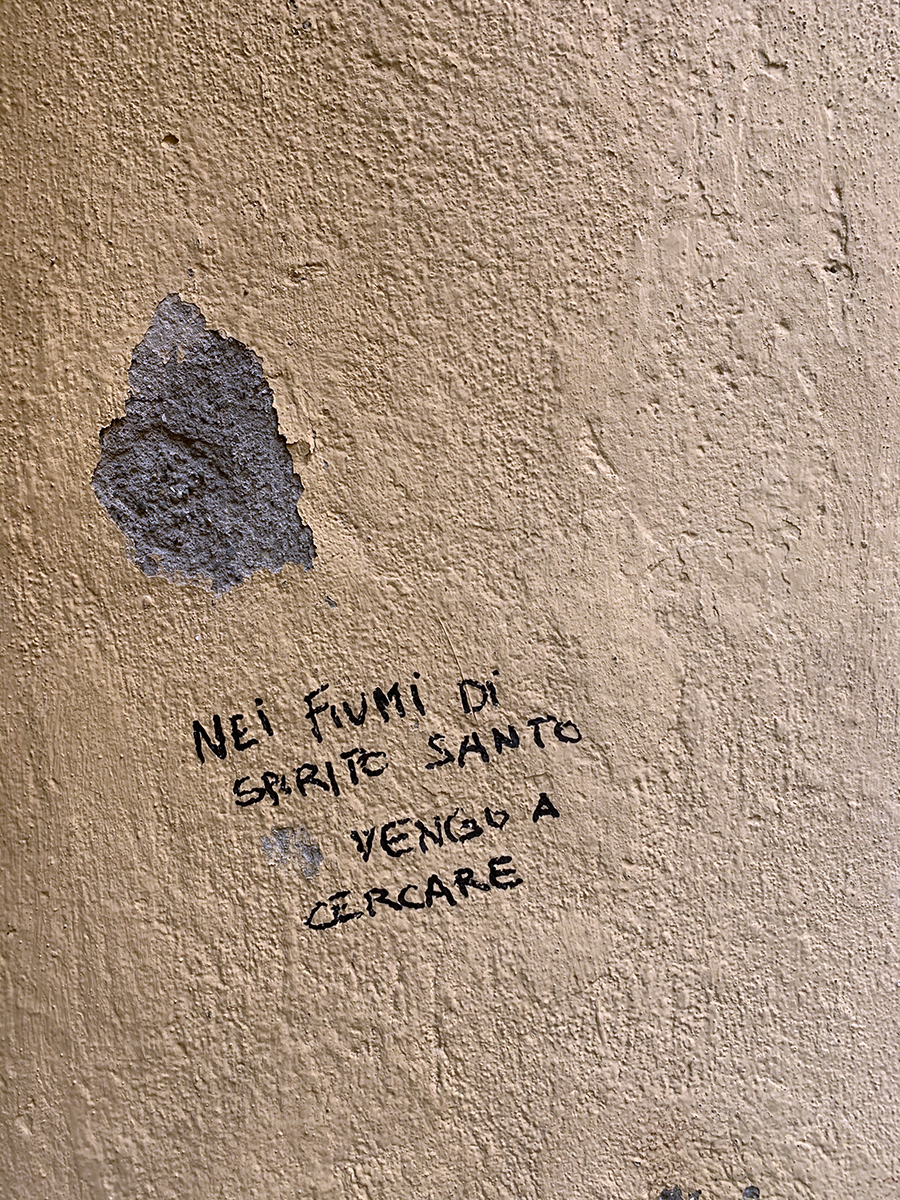 NEi FiUMi Di
SPIRITO SANTO
VENGO A
CERCARE